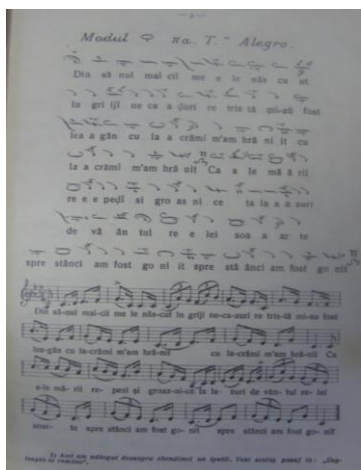 — 5 —
Modul πα. T. Alegro.
Din să nul mai cii me e ie năs cu ut
în griji ne ca a zuri re tris tă mi-au fost
lea a găn cu la a crămi m'am hră ni it cu
la a crămi m'am hră nit Ca a le mă ă rii
re e e pezi și gro as ni ce ta la a zuri
de vă ân tul re e lei soa a ar te
spre stânci am fost go ni it spre stă ânci am fost go nit
Din să-nul mai-cii me le năs-cut în griji ne-ca-zuri re tris-tă mi-au fost
lea-găn cu la-crămi m'am hră-nit cu la-crămi m'am hră-nit Ca
a-le mă-rii re- pezi și groaz-ni-ce ta la- zuri de vân-tul re-lei
soar- te spre stânci am fost go-nit spre stânci am fost go- nit
1) Aici am adăogat